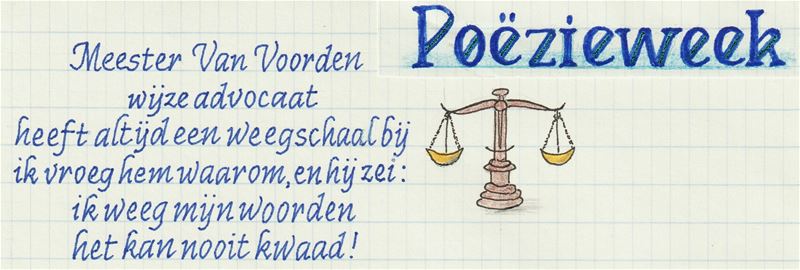 Poëzieweek
Meester Van Voorden
wijze advocaat
heeft altijd een weegschaal bij
ik vroeg hem waarom, en hij zei:
ik weeg mijn woorden
het kan nooit kwaad!